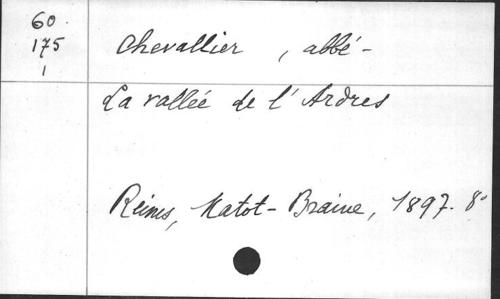 60
175
1
Chevallier , abbé -
La vallée de l' Ardres
Reims, Matot-Braine, 1897. 8°